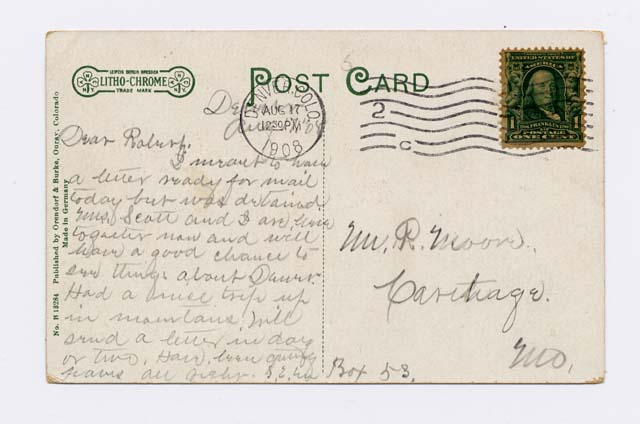 LEIPZIG BERLIN DRESDEN
LITHO-CHROME
TRADE MARK
POST CARD
DENVER, COLO.
AUG 17
12:30 PM
1908
2
C
UNITED STATES OF AMERICA
FRANKLIN
1 1
POSTAGE
ONE CENT
No. R 13284 Published by Orendorf & Burke, Ouray, Colorado
Made in Germany
Dear Robert.
I meant to have
a letter ready for mail
today but was detained.
Mrs. Scott and I are here
together now and will
have a good chance to
see things about Denver.
Had a nice trip up
in mountains. Will
send a letter in day
or two. Have been
all right.
Mr. R. Moore.
Carthage.
Mo.
Box 53.